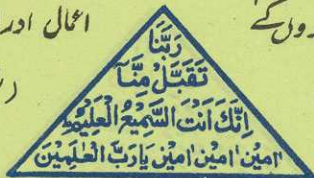 اعمال اور
رَبَّنَا
تَقَبَّلْ مِنَّآ
اِنَّكَ اَنْتَ السَّمِيْعُ الْعَلِيْمُ
اٰمِيْن اٰمِيْن اٰمِيْن يَارَبَّ الْعٰلَمِيْنَ